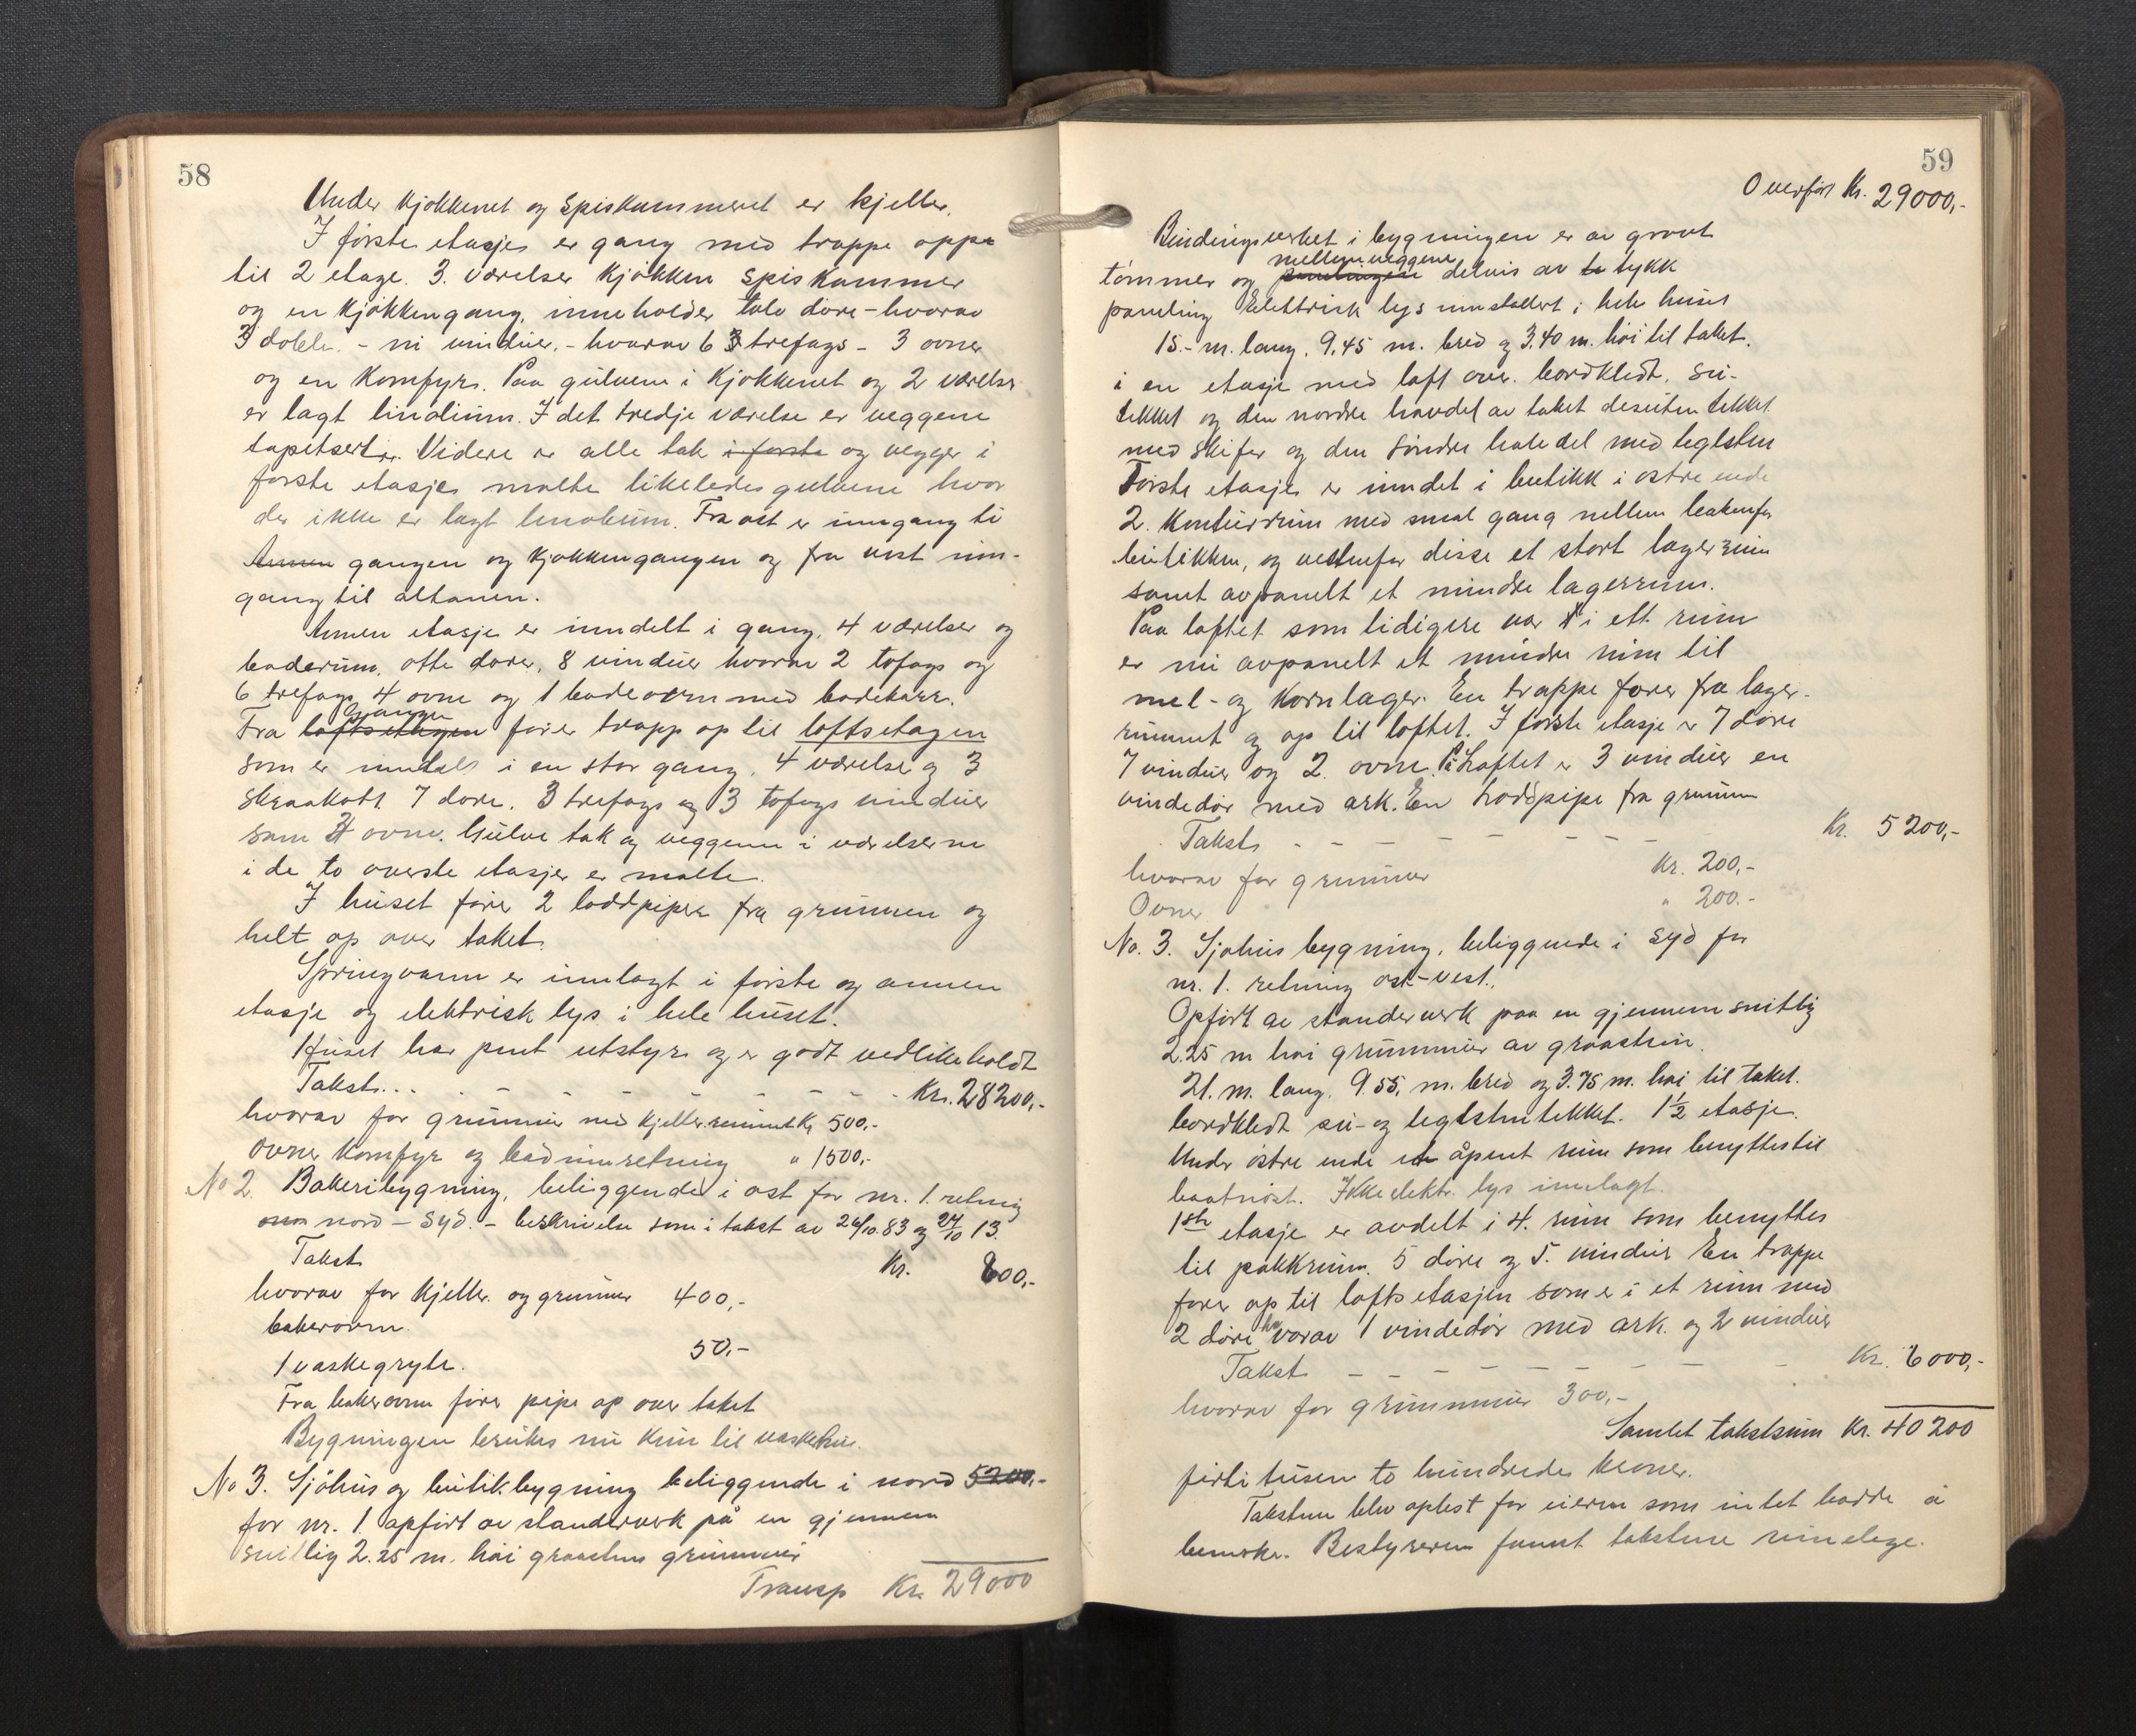 58
Under kjøkkenet og spiskammeret er kjeller.
I første etasje er gang med trappe oppe
til 2 etage. 3. værelser kjøkken spiskammer
og en kjøkkengang, inneholder tolv døre - hvorav
3 doble. - ni vinduer. - hvorav 6 trefags - 3 ovner
og en komfyr. Paa gulvene i kjøkkenet og 2 værelser
er lagt linolium. I det tredje værelse er veggene
tapetsert. Videre er alle tak i første og vegger i
første etasje malte likeledes gulvene hvor
der ikke er lagt linoleum. Fra øst er inngang ti
Annen gangen og kjøkkengangen og fra vest inn-
gang til altanen.
Annen etasje er inndelt i gang, 4 værelser og
baderum, otte dører, 8 vinduer hvorav 2 tofags og
6 trefags 4 ovne og 1 badeovn med badekarr.
Gangen
Fra loftsetagen fører trapp op til loftsetagen
som er inndelt i en stor gang, 4 værelse og 3
skraakott 7 døre, 3 trefags og 3 tofags vinduer
samt ovne. Gulve tak og veggene i værelserne
i de to øverste etasjer er malte.
I huset fører 2 loddpiper fra grunnen og
helt op over taket.
Springvann er innlagt i første og annen
etasje og elektrisk lys i hele huset.
Huset har pent utstyr og er godt vedlikeholdt
Takst... - - - - - - - - Kr. 28200,-
hvorav for grunmur med kjellerrummet Kr 500,-
Ovner komfyr og badinnretning " 1500,-
No 2. Bakeribygning, beliggende i øst for nr. 1. retning
nord - syd. - beskrivelse som i takst av 26/10.83 og 24/10 13.
Takst Kr. 800,-
hvorav for kjeller og grunmur 400,-
bakerovn
1 vaskegryte. 50,-
Fra bakerovnen fører pipe op over taket
Bygningen brukes nu kun til vaskehus.
No 3. Sjøhus og butikbygning beliggende i nord 5200,-
for nr. 1. opført av standerverk på en gjennem
snittlig 2.25 m. høi graastens grunmur
Transp Kr. 29000
59
Overført Kr. 29000,-
Bindingsverket i bygningen er av grovt
mellemveggene
tømmer og panelingen delvis av to tykk
paneling Elektrisk lys innstallert i hele huset
15.- m. lang. 9,45 m. bred og 3,40 m. høi til taket.
i en etasje med loft over. bordkledt, su-
tekket og den nordre halvdel av taket desuten tekket
med skifer og den søndre halvdel med teglsten
Første etasje er inndelt i butikk i østre ende
2. kontorrum med smal gang mellem bakenfor
butikken, og vestenfor disse et stort lagerrum
samt avpanelt et mindre lagerrum.
Paa loftet som tidigere var i ett rum
er nu avpanelt et mindre rum til
mel- og kornlager. En trappe fører fra lager-
rummet og op til loftet. I første etasje er 7 døre
7 vinduer og 2 ovne. På Loftet er 3 vinduer en
vindedør med ark. En loddpipe fra grunnen
Takst - - - - - - - - Kr. 5200,-
hvorav for grunmur Kr. 200,-
Ovner " 200.-
No. 3. Sjøhus bygning, beliggende i syd for
nr. 1. retning øst-vest.
Opført av standerverk paa en gjennemsnittlig
2.25 m høi grunnmur av graasten.
21. m. lang, 9.55, m. bred og 3.75 m. høi til taket.
bordkledt su- og teglstentekket. 1 1/2 etasje.
Under østre ende et åpent rum som benyttes til
baatnøst. Ikke elektr. lys innlagt.
1ste etasje er avdelt i 4. rum som benyttes
til pakkrum. 5 døre og 5. vinduer En trappe
fører op til loftsetasjen som er i et rum med
2 døre hvorav 1 vindedør med ark. og 2 vinduer
Takst - - - - - - - Kr. 6000,-
hvorav for grunnmur 300,-
Samlet takstsum Kr. 40200
førti tusen to hundrede kroner.
Taksten blev oplest for eieren som intet hadde å
bemerke. Bestyreren funnet takstene rimelige.